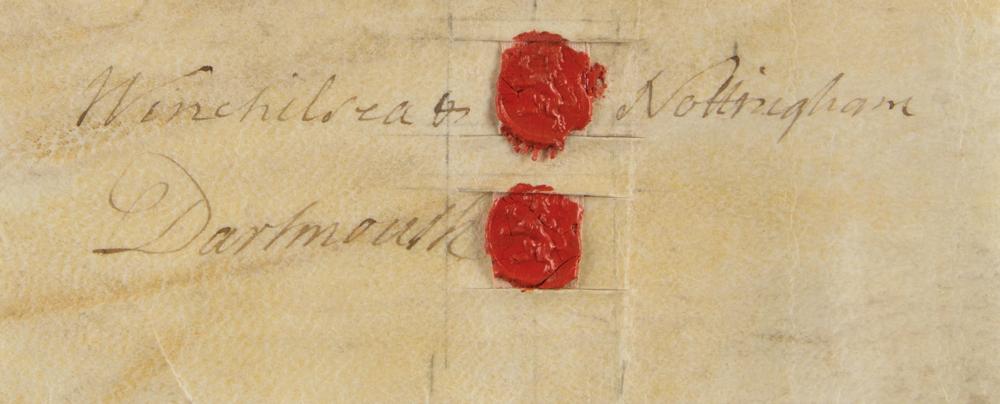 Winchilsea & Nottingham
Dartmouth